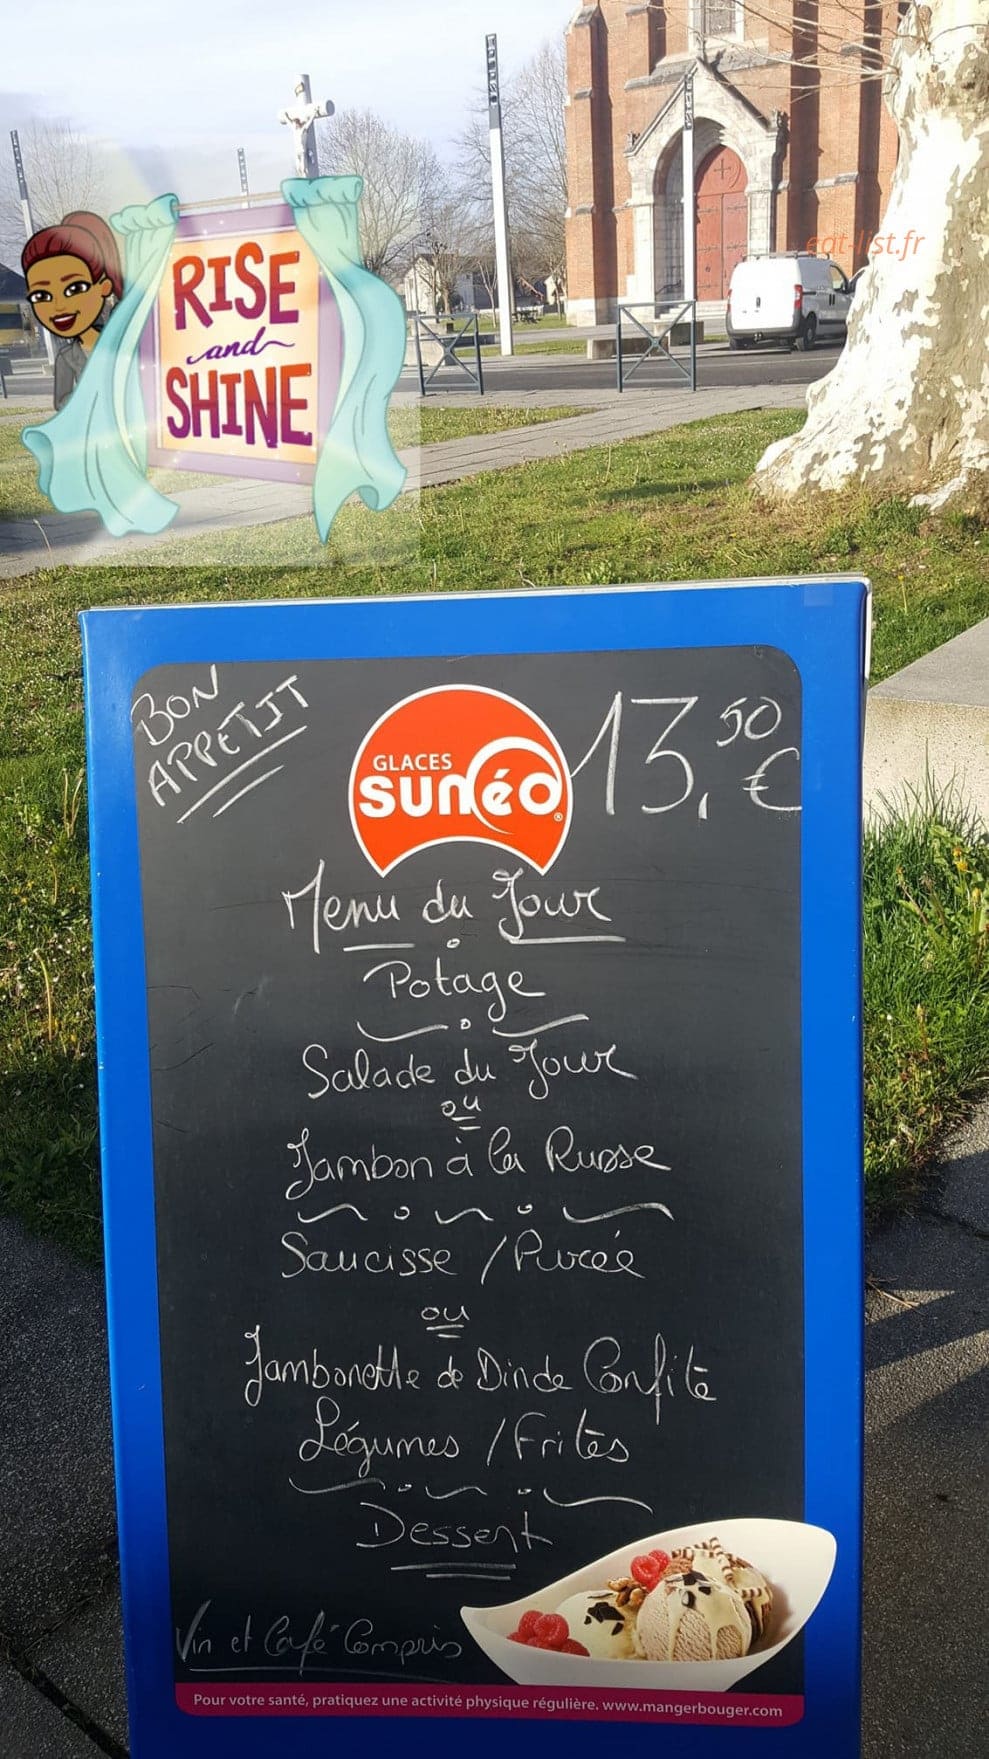 eat-list.fr
RISE
and
SHINE
BON
APPÉTIT
GLACES
sunéo
13,50 €
Menu du Jour
Potage
Salade du Jour
ou
Jambon à la Russe
Saucisse / Purée
ou
Jambonette de Dinde Confite
Légumes / Frites
Dessert
Vin et Café Compris
Pour votre santé, pratiquez une activité physique régulière. www.mangerbouger.com